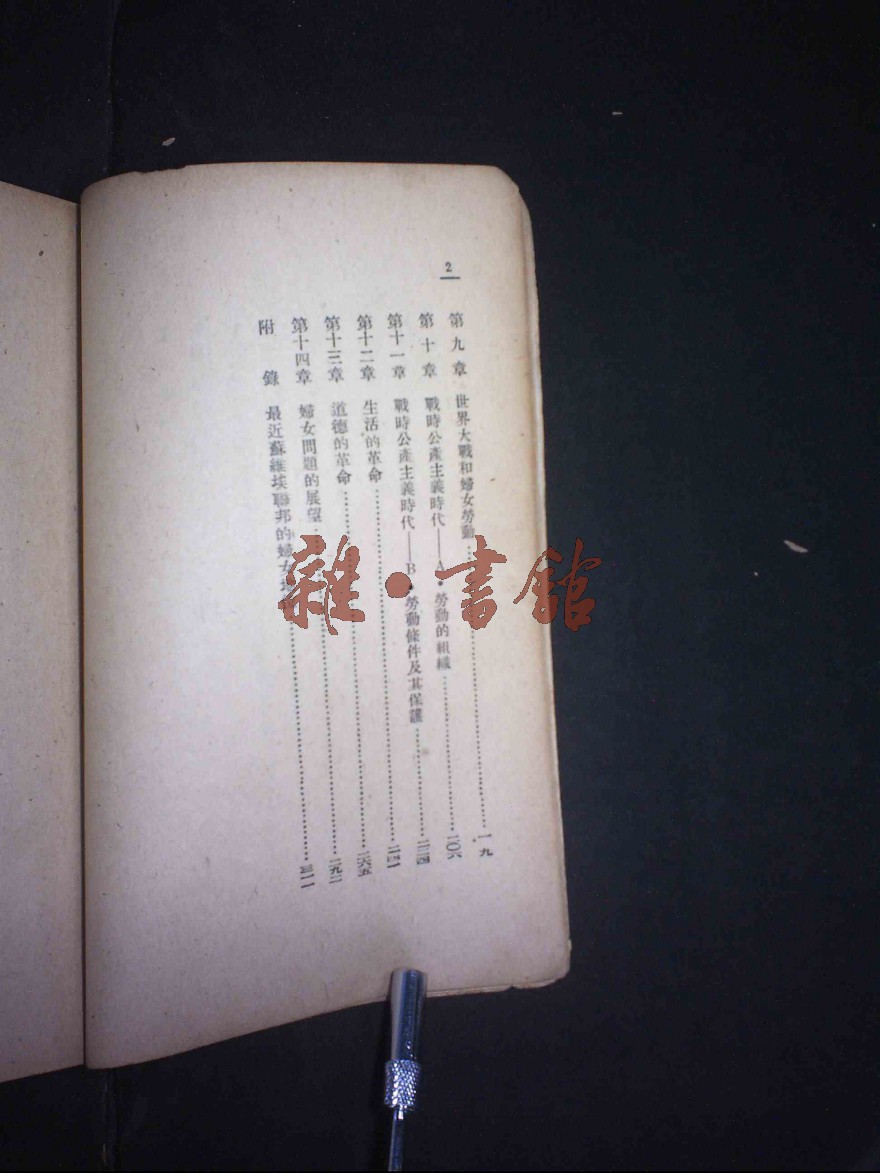 2
第九章 世界大戰和婦女勞動……一九
第十章 戰時公產主義時代——A•勞動的組織……二〇六
第十一章 戰時公產主義時代——B•勞動條件及其保護……二二四
第十二章 生活的革命……二四一
第十三章 道德的革命……二六五
第十四章 婦女問題的展望……二九二
附錄 最近蘇維埃聯邦的婦女……三一一
雜•書館